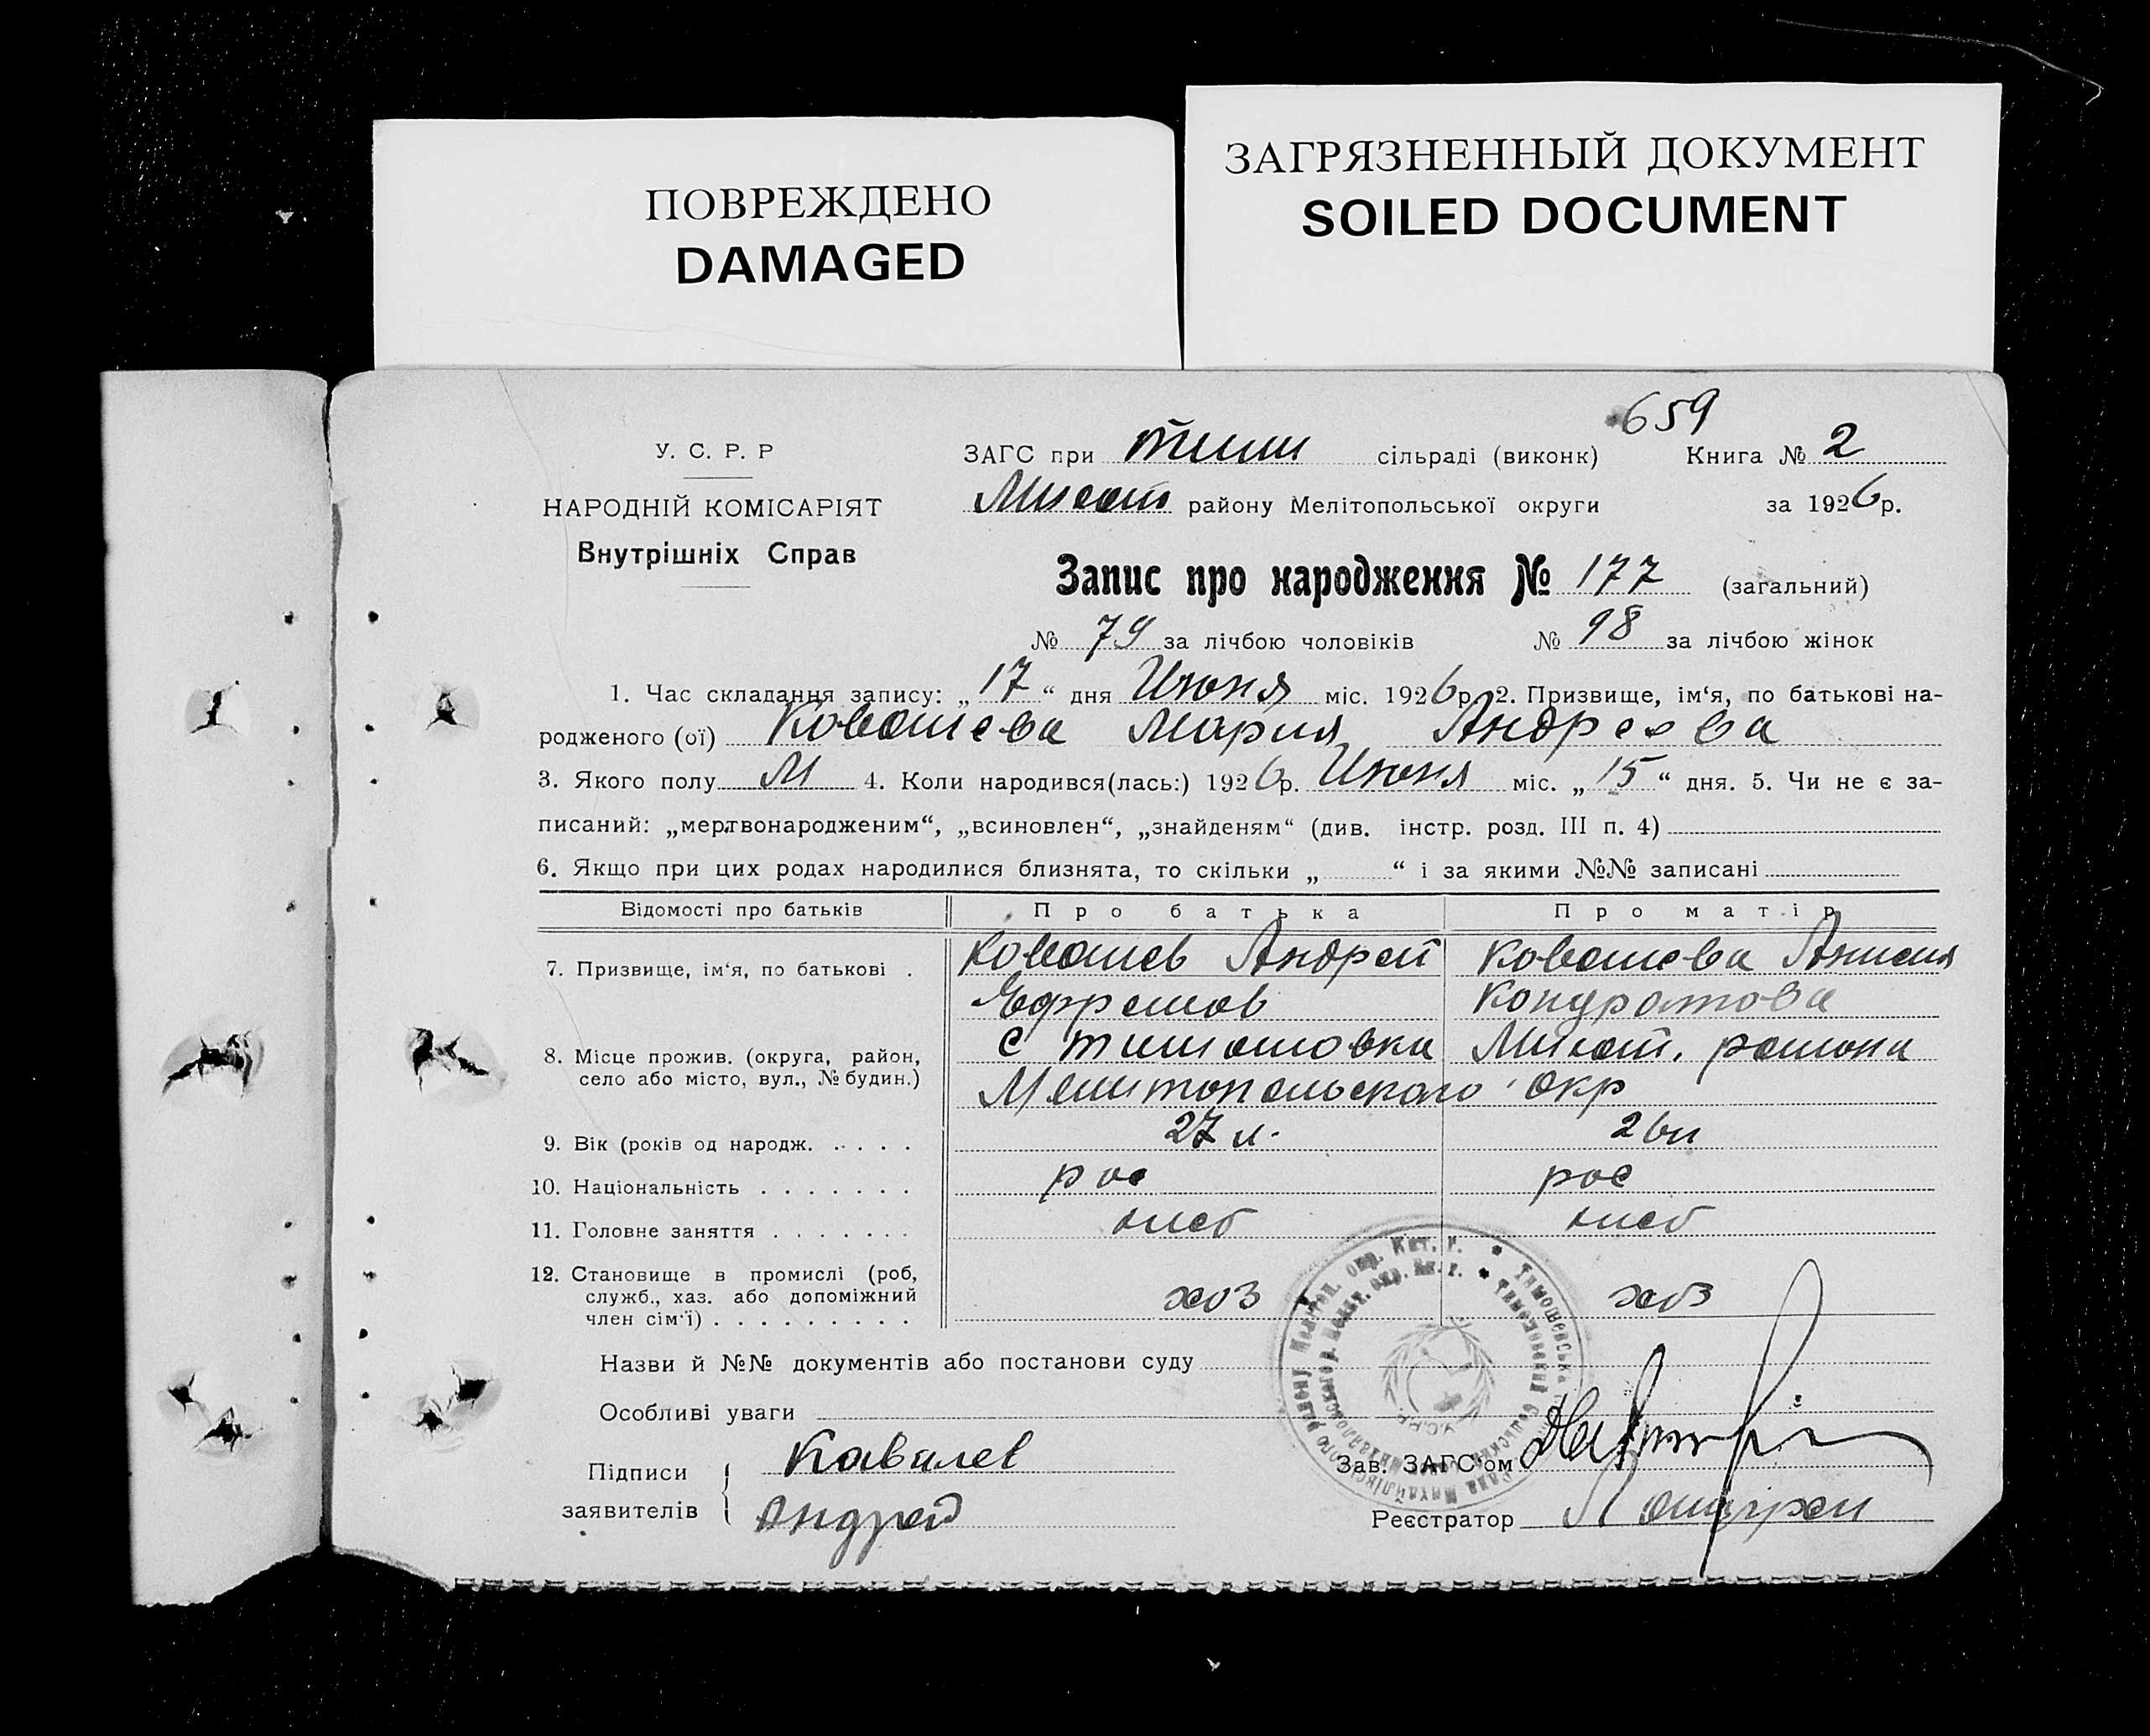 ПОВРЕЖДЕНО
DAMAGED
ЗАГРЯЗНЕННЫЙ ДОКУМЕНТ
SOILED DOCUMENT
659
У. С. Р. Р
НАРОДНІЙ КОМІСАРІЯТ
Внутрішніх Справ
ЗАГС при Тим сільраді (виконк) Книга № 2
району Мелітопольської округи за 1926р.
Запис про народження № 177 (загальний)
№ 79 за лічбою чоловіків № 98 за лічбою жінок
1. Час складання запису: „ 17 “ дня Июня міс. 1926р. 2. Призвище, ім‘я, по батькові на-
родженого (ої) Ковалева Мария Андреева
3. Якого полу М 4. Коли народився(лась:) 1926р. Июня міс. „ 15 “ дня. 5. Чи не є за-
писаний: „мертвонародженим“, „всиновлен“, „знайденям“ (див. інстр. розд. III п. 4)
6. Якщо при цих родах народилися близнята, то скільки „ “ і за якими №№ записані
Відомості про батьків Про батька Про матір
7. Призвище, ім‘я, по батькові . Ковалев Андрей Ковалева
Ефремов Кондратова
8. Місце прожив. (округа, район, с Тимошовка района
село або місто, вул., № будин.) Мелитопольского окр
9. Вік (років од народж. . . . . . 27 л. 26 л
10. Національність . . . . . . . рос рос
11. Головне заняття . . . . . . . хлеб хлеб
12. Становище в промислі (роб,
служб., хаз. або допоміжний хоз хоз
член сім‘ї) . . . . . . . . .
Назви й №№ документів або постанови суду
Особливі уваги
Підписи Кавалев
заявителів Андрей
Зав. ЗАГС‘ом
Реєстратор